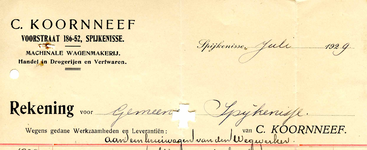 C. KOORNNEEF
VOORSTRAAT 186-52, SPIJKENISSE.
MACHINALE WAGENMAKERIJ.
Handel in Drogerijen en Verfwaren.
Spijkenisse, Juli 1929.
Rekening voor Gemeen Spijkenisse
Wegens gedane Werkzaamheden en Leverantiën: van C. KOORNNEEF.
aan een kruiwagen van den Wegwerker